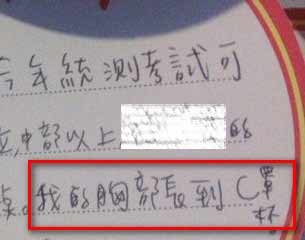 今年統測考試可
立,中部以上 的
。我的胸部長到C罩杯